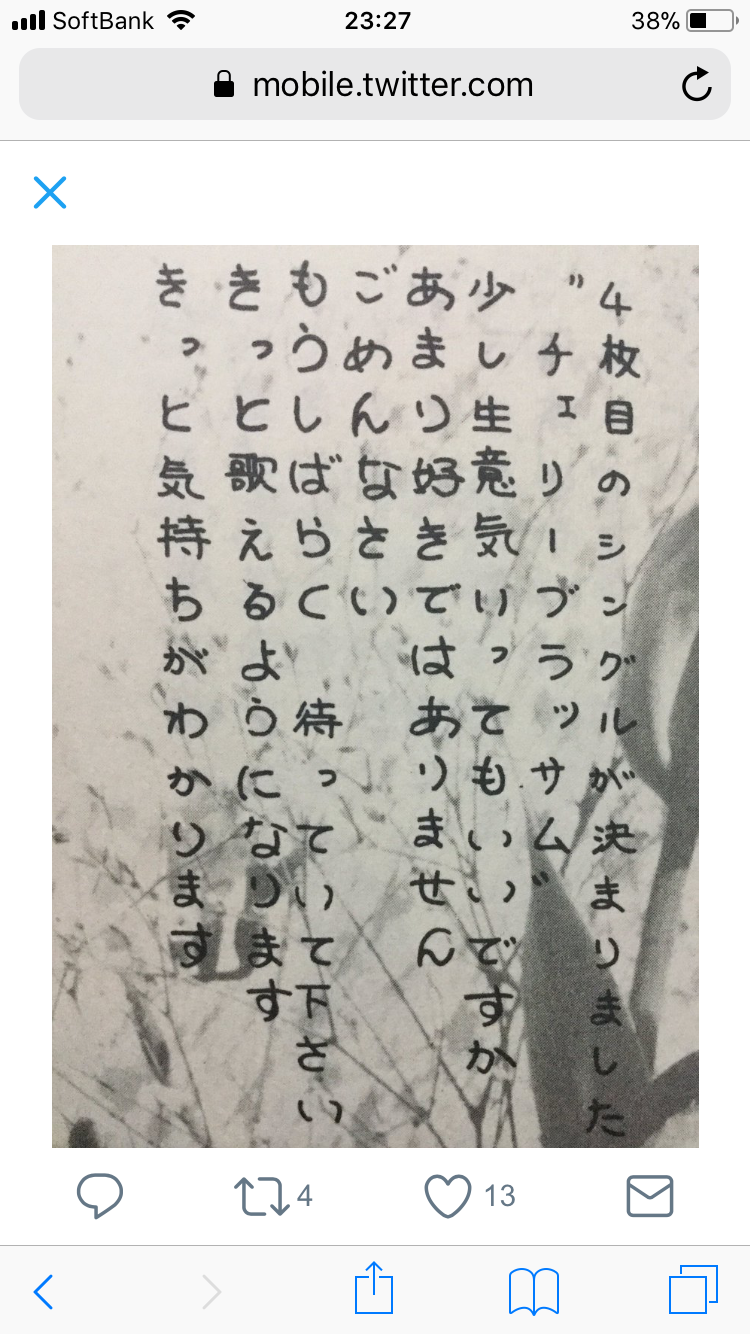 SoftBank 23:27 38%
mobile.twitter.com
4枚目のシングルが決まりました
〝チェリーブラッサム〟
少し生意気いってもいいですか
あまり好きではありません
ごめんなさい
もうしばらく 待っていて下さい
きっと歌えるようになります
きっと気持ちがわかります
4 13